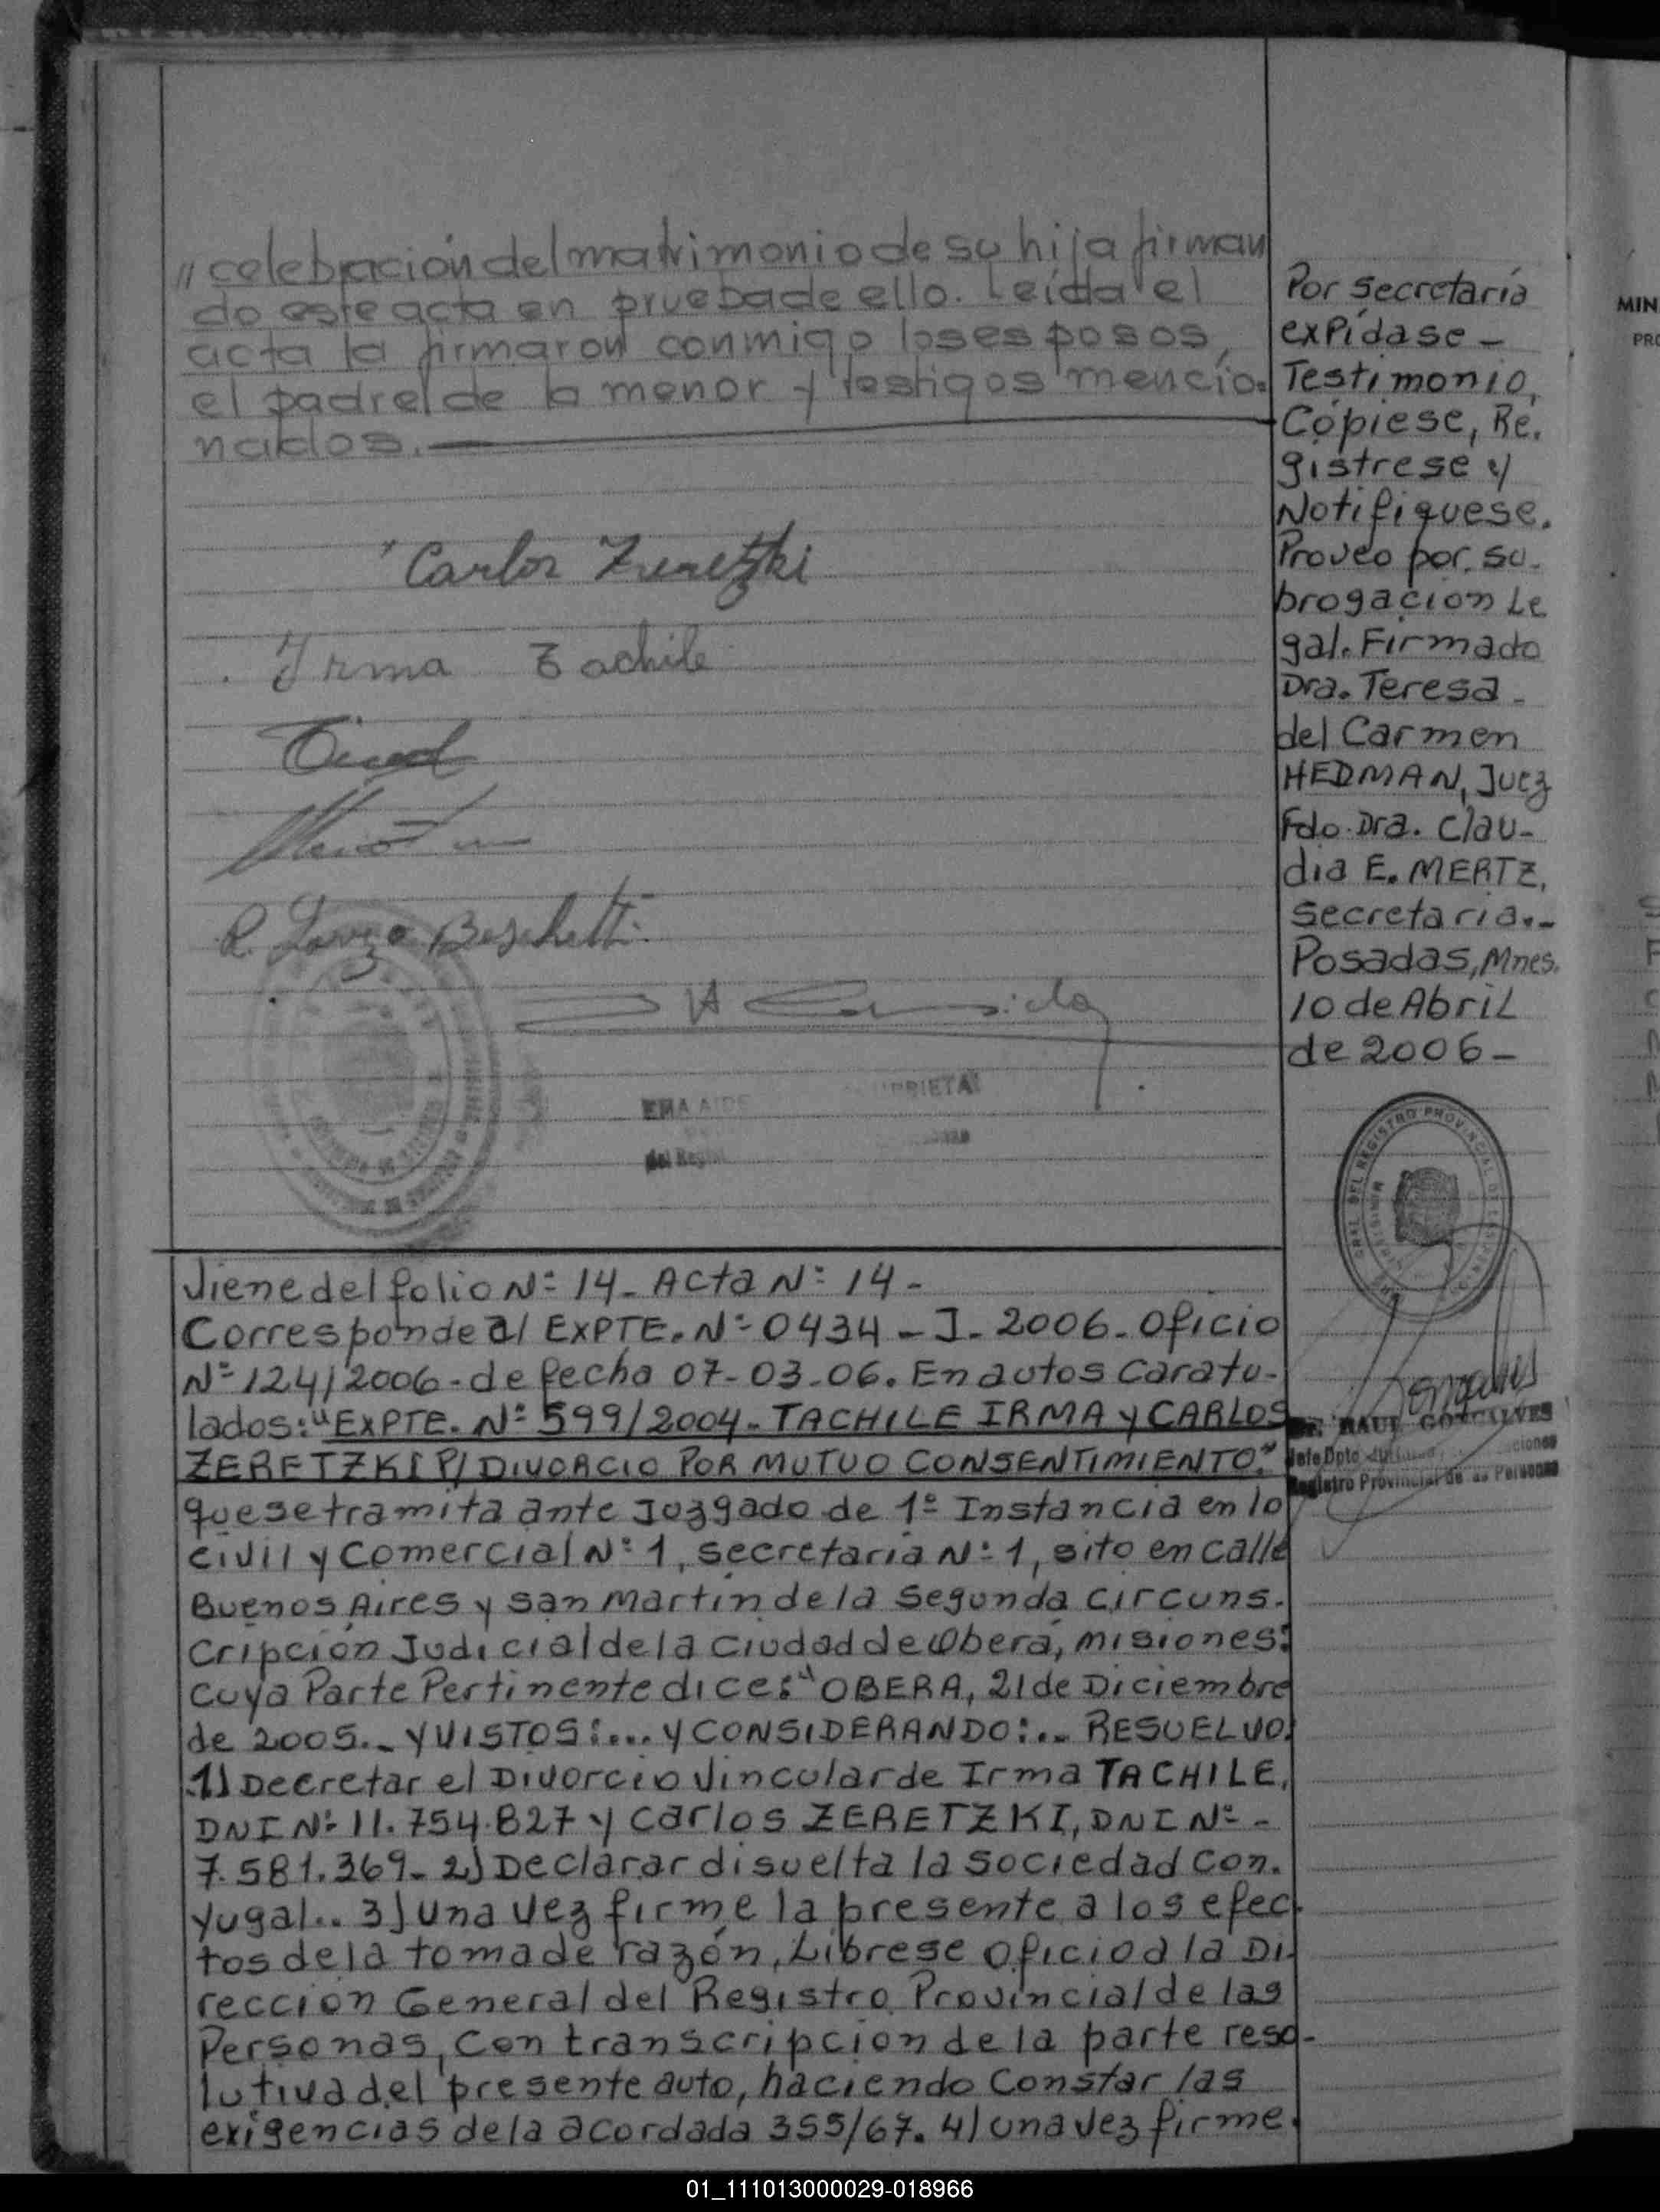 // celebración del matrimonio de su hija firman
do este acta en prueba de ello. Leída el
acta la firmaron conmigo los esposos,
el padre de la menor y testigos mencio-
nados.
Carlos Zeretzki
Irma Tachile
R. Beschetti
del Regist
Viene del folio Nº 14 - Acta Nº 14 -
Corresponde al EXPTE. Nº 0434 - J - 2006 - Oficio
Nº 124/2006 - de fecha 07-03-06. En autos Caratu-
lados: "EXPTE. Nº 599/2004 - TACHILE IRMA y CARLOS
ZERETZKI P/ DIVORCIO POR MUTUO CONSENTIMIENTO."
que se tramita ante Juzgado de 1º Instancia en lo
Civil y Comercial Nº 1, secretaria Nº 1, sito en calle
Buenos Aires y San Martin de la Segunda Circuns-
cripción Judicial de la Ciudad de Oberá, misiones:
cuya Parte Pertinente dice: "OBERA, 21 de Diciembre
de 2005.- Y VISTOS:... Y CONSIDERANDO:... RESUELVO:
1) Decretar el Divorcio Vincular de Irma TACHILE,
DNI Nº 11.754.827 y Carlos ZERETZKI, DNI Nº -
7.581.369 - 2) Declarar disuelta la sociedad Con-
yugal.. 3) Una vez firme la presente a los efec-
tos de la toma de razón, Librese oficio a la Di-
reccion General del Registro Provincial de las
Personas, con transcripcion de la parte reso-
lutiva del presente auto, haciendo Constar las
exigencias de la acordada 355/67. 4) Una vez firme.
Por Secretaría
expídase -
Testimonio,
Cópiese, Re.
gistrese y
Notifiquese.
Proveo por su-
brogación Le
gal. Firmado
Dra. Teresa -
del Carmen
HEDMAN, Juez
Fdo. Dra. Clau-
dia E. MERTZ,
Secretaria.-
Posadas, Mnes.
10 de Abril
de 2006 -
RAUL GONCALVES
Jefe Dpto
Registro Provincial de las Personas
MIN
PRO
01_111013000029-018966